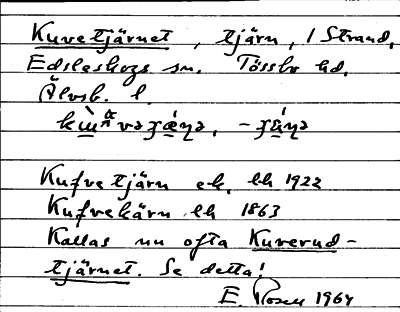 Kuvetjärnet, tjärn, 1 Strand,
Edsleskogs sn. Tössbo hd,
Älvsb. l.
Kufvetjärn ek. bl 1922
Kufvekärn bl 1863
Kallas nu ofta Kuverud-
tjärnet. Se detta!
E. Rosen 1964